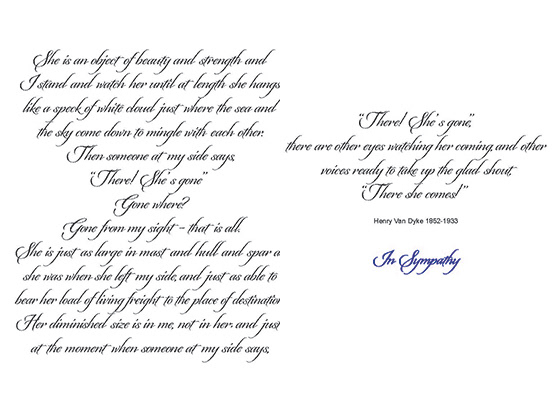 She is an object of beauty and strength and
I stand and watch her until at length she hangs
like a speck of white cloud just where the sea and
the sky come down to mingle with each other.
Then someone at my side says,
"There! She's gone"
Gone where?
Gone from my sight - that is all.
She is just as large in mast and hull and spar a
she was when she left my side, and just as able to
bear her load of living freight to the place of destination
Her diminished size is in me, not in her. and just
at the moment when someone at my side says,
"There! She's gone",
there are other eyes watching her coming, and other
voices ready to take up the glad shout,
"There she comes!"
Henry Van Dyke 1852-1933
In Sympathy